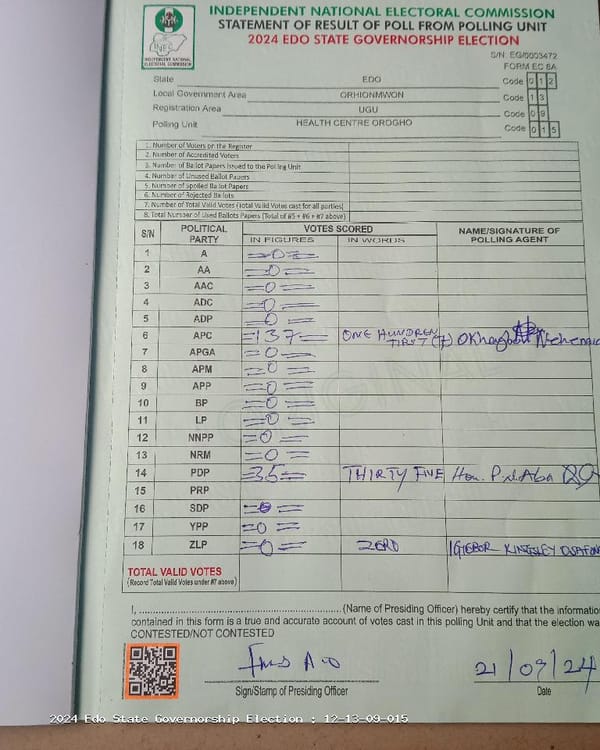 INDEPENDENT NATIONAL ELECTORAL COMMISSION
STATEMENT OF RESULT OF POLL FROM POLLING UNIT
2024 EDO STATE GOVERNORSHIP ELECTION
INEC
INDEPENDENT NATIONAL ELECTORAL COMMISSION
S/N: EG/0003472
FORM EC 8A
State EDO Code 0 1 2
Local Government Area ORHIONMWON Code 1 3
Registration Area UGU Code 0 9
Polling Unit HEALTH CENTRE OROGHO Code 0 1 5
1. Number of Voters on the Register
2. Number of Accredited Voters
3. Number of Ballot Papers Issued to the Polling Unit
4. Number of Unused Ballot Papers
5. Number of Spoiled Ballot Papers
6. Number of Rejected Ballots
7. Number of Total Valid Votes (Total Valid Votes cast for all parties)
8. Total Number of Used Ballots Papers (Total of #5 + #6 + #7 above)
S/N POLITICAL PARTY VOTES SCORED NAME/SIGNATURE OF POLLING AGENT
IN FIGURES IN WORDS
1 A =0=
2 AA =0=
3 AAC =0=
4 ADC =0=
5 ADP =0=
6 APC =137= ONE HUNDREN
7 APGA =0=
8 APM =0=
9 APP =0=
10 BP =0=
11 LP =0=
12 NNPP =0=
13 NRM =0=
14 PDP =35= THIRTY FIVE Hon.
15 PRP
16 SDP =0=
17 YPP =0=
18 ZLP =0= ZERO KINGSLEY
TOTAL VALID VOTES
(Record Total Valid Votes under #7 above)
I, (Name of Presiding Officer) hereby certify that the information
contained in this form is a true and accurate account of votes cast in this polling Unit and that the election wa
CONTESTED/NOT CONTESTED
21/09/24
Sign/Stamp of Presiding Officer Date
2024 Edo State Governorship Election : 12-13-09-015